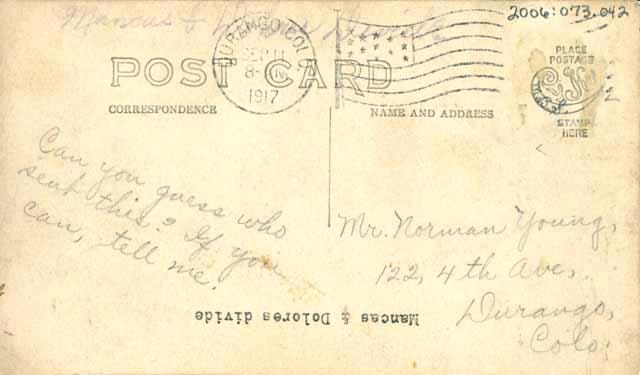 2006:073.042
Mancas & Dolores divide
DURANGO, COLO.
SEP 11
8-
1917
POST CARD
PLACE
POSTAGE
STAMP
HERE
CORRESPONDENCE
NAME AND ADDRESS
Can you guess who
sent this? If you
can, tell me.
Mr. Norman Young,
122, 4th Ave.,
Durango,
Colo.
Mancas & Dolores divide